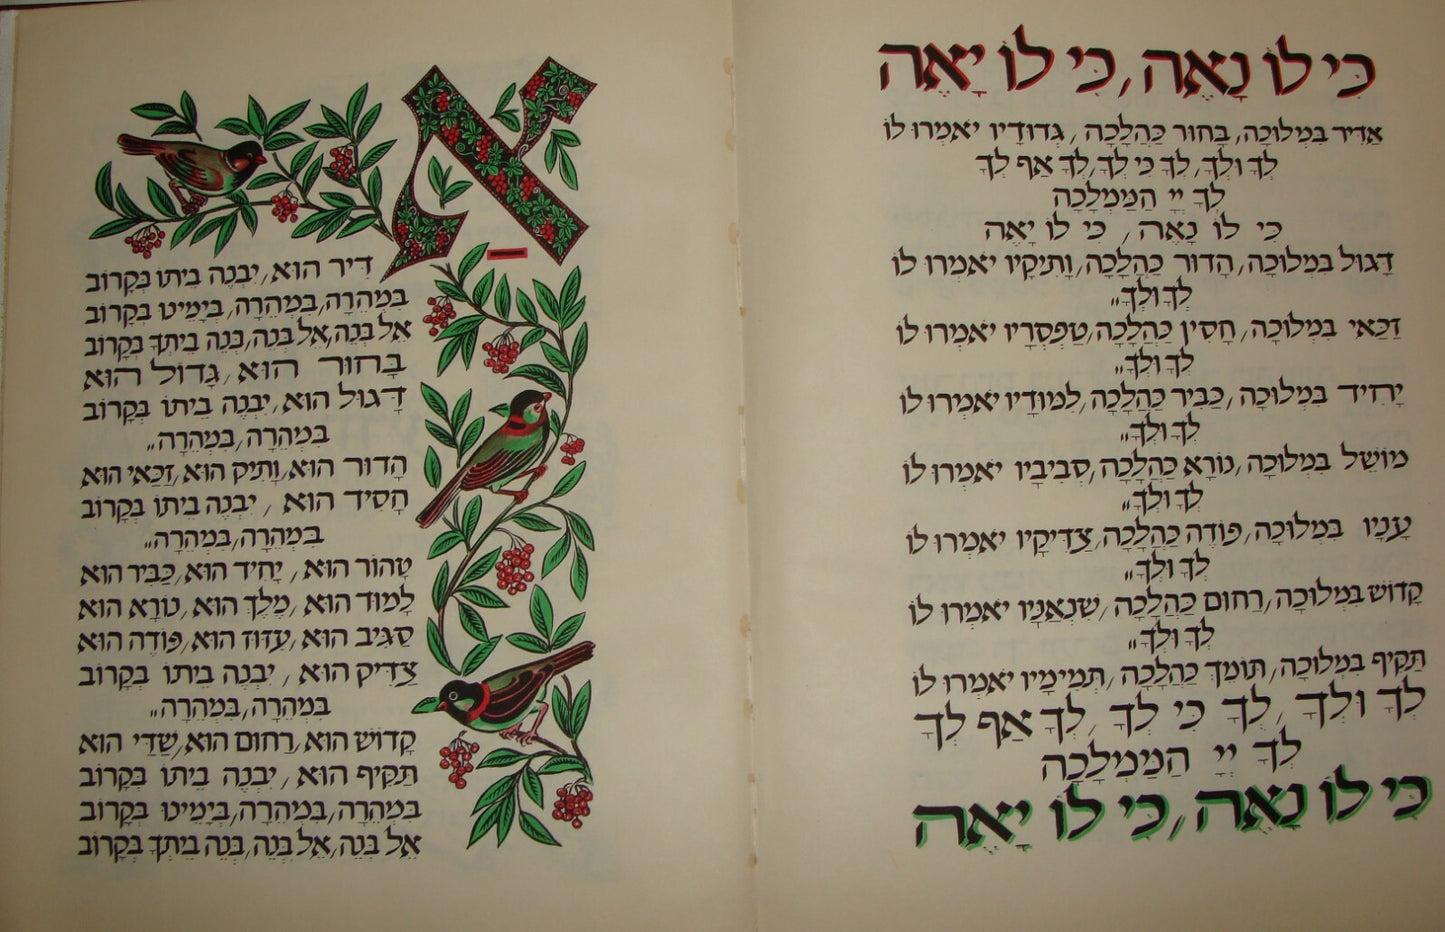 כִּי לוֹ נָאֶה, כִּי לוֹ יָאֶה
אַדִּיר בִּמְלוּכָה, בָּחוּר כַּהֲלָכָה, גְּדוּדָיו יֹאמְרוּ לוֹ
לְךָ וּלְךָ, לְךָ כִּי לְךָ, לְךָ אַף לְךָ
לְךָ יְיָ הַמַּמְלָכָה
כִּי לוֹ נָאֶה, כִּי לוֹ יָאֶה
דָּגוּל בִּמְלוּכָה, הָדוּר כַּהֲלָכָה, וָתִיקָיו יֹאמְרוּ לוֹ
לְךָ וּלְךָ״
זַכַּאי בִּמְלוּכָה, חָסִין כַּהֲלָכָה, טַפְסְרָיו יֹאמְרוּ לוֹ
לְךָ וּלְךָ״
יָחִיד בִּמְלוּכָה, כַּבִּיר כַּהֲלָכָה, לִמּוּדָיו יֹאמְרוּ לוֹ
לְךָ וּלְךָ״
מוֹשֵׁל בִּמְלוּכָה, נוֹרָא כַּהֲלָכָה, סְבִיבָיו יֹאמְרוּ לוֹ
לְךָ וּלְךָ״
עָנָיו בִּמְלוּכָה, פּוֹדֶה כַּהֲלָכָה, צַדִּיקָיו יֹאמְרוּ לוֹ
לְךָ וּלְךָ״
קָדוֹשׁ בִּמְלוּכָה, רַחוּם כַּהֲלָכָה, שִׁנְאַנָּיו יֹאמְרוּ לוֹ
לְךָ וּלְךָ״
תַּקִּיף בִּמְלוּכָה, תּוֹמֵךְ כַּהֲלָכָה, תְּמִימָיו יֹאמְרוּ לוֹ
לְךָ וּלְךָ, לְךָ כִּי לְךָ, לְךָ אַף לְךָ
לְךָ יְיָ הַמַּמְלָכָה
כִּי לוֹ נָאֶה, כִּי לוֹ יָאֶה
אַדִּיר הוּא, יִבְנֶה בֵיתוֹ בְּקָרוֹב
בִּמְהֵרָה, בִּמְהֵרָה, בְּיָמֵינוּ בְּקָרוֹב
אֵל בְּנֵה, אֵל בְּנֵה, בְּנֵה בֵיתְךָ בְּקָרוֹב
בָּחוּר הוּא, גָּדוֹל הוּא
דָּגוּל הוּא, יִבְנֶה בֵיתוֹ בְּקָרוֹב
בִּמְהֵרָה, בִּמְהֵרָה״
הָדוּר הוּא, וָתִיק הוּא, זַכַּאי הוּא
חָסִיד הוּא, יִבְנֶה בֵיתוֹ בְּקָרוֹב
בִּמְהֵרָה, בִּמְהֵרָה״
טָהוֹר הוּא, יָחִיד הוּא, כַּבִּיר הוּא
לָמוּד הוּא, מֶלֶךְ הוּא, נוֹרָא הוּא
סַגִּיב הוּא, עִזּוּז הוּא, פּוֹדֶה הוּא
צַדִּיק הוּא, יִבְנֶה בֵיתוֹ בְּקָרוֹב
בִּמְהֵרָה, בִּמְהֵרָה״
קָדוֹשׁ הוּא, רַחוּם הוּא, שַׁדַּי הוּא
תַּקִּיף הוּא, יִבְנֶה בֵיתוֹ בְּקָרוֹב
בִּמְהֵרָה, בִּמְהֵרָה, בְּיָמֵינוּ בְּקָרוֹב
אֵל בְּנֵה, אֵל בְּנֵה, בְּנֵה בֵיתְךָ בְּקָרוֹב